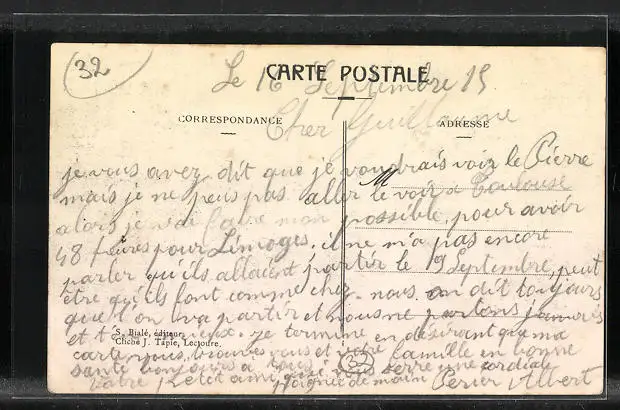 32
CARTE POSTALE
Le 16 Septembre 15
CORRESPONDANCE
ADRESSE
Cher Guillaume
je vous avez dit que je voudrais voir le Pierre
mais je ne peus pas aller le voir a Toulouse
M
alors je vai faire mon possible, pour avoir
48 heures pour Limoges. il ne m'a pas encore
parler qu'ils allaient partir le 19 Septembre, peut
être qu'ils font comme chez nous on dit toujours
que l'on va partir et nous ne partons jamais
et mieux. je termine en désirant que ma
S. Bialé, éditeur
Cliché J. Tapie, Lectoure.
carte vous trouvera vous et votre famille en bonne
santé bonjours a tous vous serre une cordiale
votre petit ami poignée de main Perier Albert